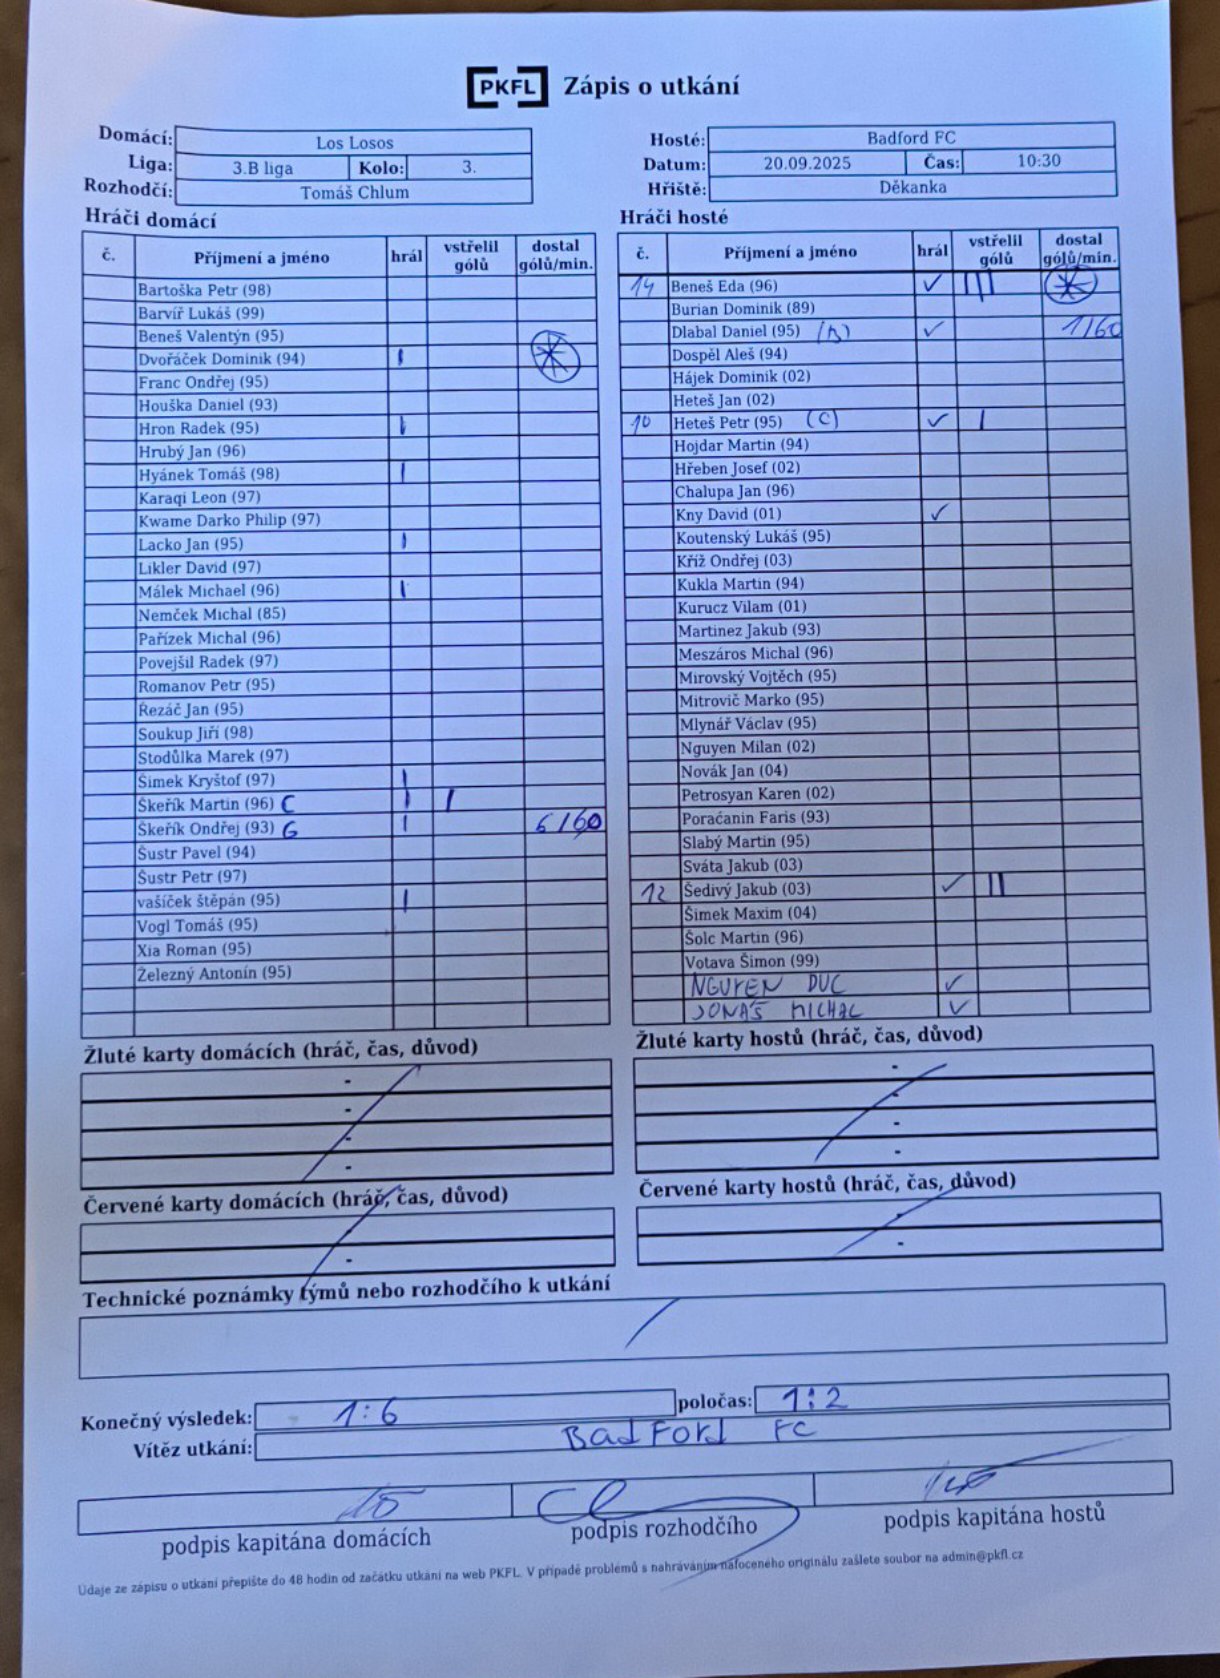 PKFL Zápis o utkání
Domácí: Los Losos
Liga: 3.B liga Kolo: 3.
Rozhodčí: Tomáš Chlum
Hosté: Badford FC
Datum: 20.09.2025 Čas: 10:30
Hřiště: Děkanka
Hráči domácí
č. Příjmení a jméno hrál vstřelil gólů dostal gólů/min.
Bartoška Petr (98)
Barvíř Lukáš (99)
Beneš Valentýn (95)
Dvořáček Dominik (94) I
Franc Ondřej (95)
Houška Daniel (93)
Hron Radek (95) I
Hrubý Jan (96)
Hyánek Tomáš (98) I
Karaqi Leon (97)
Kwame Darko Philip (97)
Lacko Jan (95) I
Likler David (97)
Málek Michael (96) I
Nemček Michal (85)
Pařízek Michal (96)
Povejšil Radek (97)
Romanov Petr (95)
Řezáč Jan (95)
Soukup Jiří (98)
Stodůlka Marek (97)
Šimek Kryštof (97) I
Škeřík Martin (96) C I I
Škeřík Ondřej (93) G I 6/60
Šustr Pavel (94)
Šustr Petr (97)
vašíček štěpán (95) I
Vogl Tomáš (95)
Xia Roman (95)
Železný Antonín (95)
Hráči hosté
č. Příjmení a jméno hrál vstřelil gólů dostal gólů/min.
14 Beneš Eda (96) ✓ III
Burian Dominik (89)
Dlabal Daniel (95) ✓ 1/60
Dospěl Aleš (94)
Hájek Dominik (02)
Heteš Jan (02)
10 Heteš Petr (95) (C) ✓ I
Hojdar Martin (94)
Hřeben Josef (02)
Chalupa Jan (96)
Kny David (01) ✓
Koutenský Lukáš (95)
Kříž Ondřej (03)
Kukla Martin (94)
Kurucz Vilam (01)
Martinez Jakub (93)
Meszáros Michal (96)
Mirovský Vojtěch (95)
Mitrovič Marko (95)
Mlynář Václav (95)
Nguyen Milan (02)
Novák Jan (04)
Petrosyan Karen (02)
Poraćanin Faris (93)
Slabý Martin (95)
Sváta Jakub (03)
12 Šedivý Jakub (03) ✓ II
Šimek Maxim (04)
Šolc Martin (96)
Votava Šimon (99)
NGUYEN DUC ✓
JONÁŠ MICHAL ✓
Žluté karty domácích (hráč, čas, důvod)
-
-
-
-
Žluté karty hostů (hráč, čas, důvod)
-
-
-
-
Červené karty domácích (hráč, čas, důvod)
-
-
Červené karty hostů (hráč, čas, důvod)
-
-
Technické poznámky týmů nebo rozhodčího k utkání
Konečný výsledek: 1:6 poločas: 1:2
Vítěz utkání: BadFord FC
podpis kapitána domácích podpis rozhodčího podpis kapitána hostů
Údaje ze zápisu o utkání přepište do 48 hodin od začátku utkání na web PKFL. V případě problémů s nahráváním nafoceného originálu zašlete soubor na admin@pkfl.cz